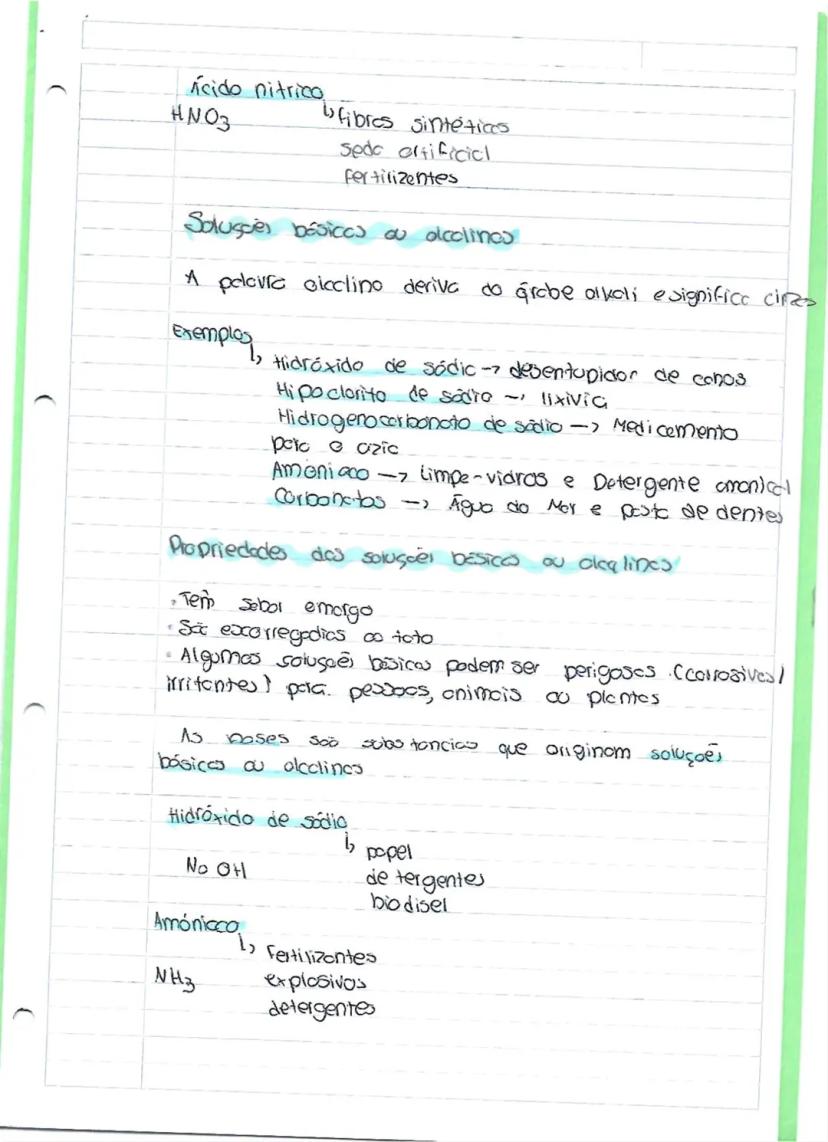 Ácido nítrico
HNO3
↳ fibras sintéticas
seda artificial
fertilizantes
Soluções básicas ou alcalinas
A palavra alcalino deriva do árabe alkali e significa cinzas
Exemplos
↳ Hidróxido de sódio → desentupidor de canos
Hipoclorito de sódio → lixivia
Hidrogenocarbonato de sódio → Medicamento
para a azia
Amoníaco → Limpa-vidros e Detergente amoniacal
Carbonatos → Água do Mar e pasta de dentes
Propriedades das soluções básicas ou alcalinas
• Tem sabor amargo
• São escorregadias ao tato
• Algumas soluções básicas podem ser perigosas (corrosivas/
irritantes) para pessoas, animais ou plantas
As bases são substancias que originam soluções
básicas ou alcalinas
Hidróxido de sódio
↳ papel
Na OH
detergentes
biodisel
Amóniaco
↳ Fertilizantes
NH3
explosivos
detergentes